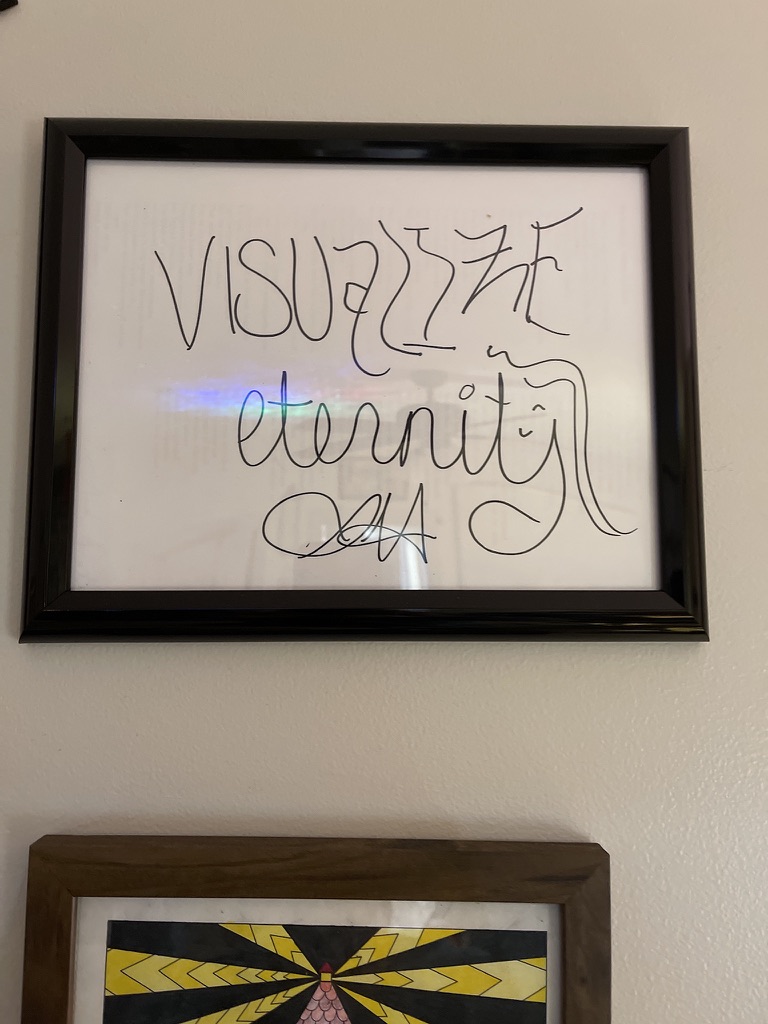 VISUALIZE
eternity